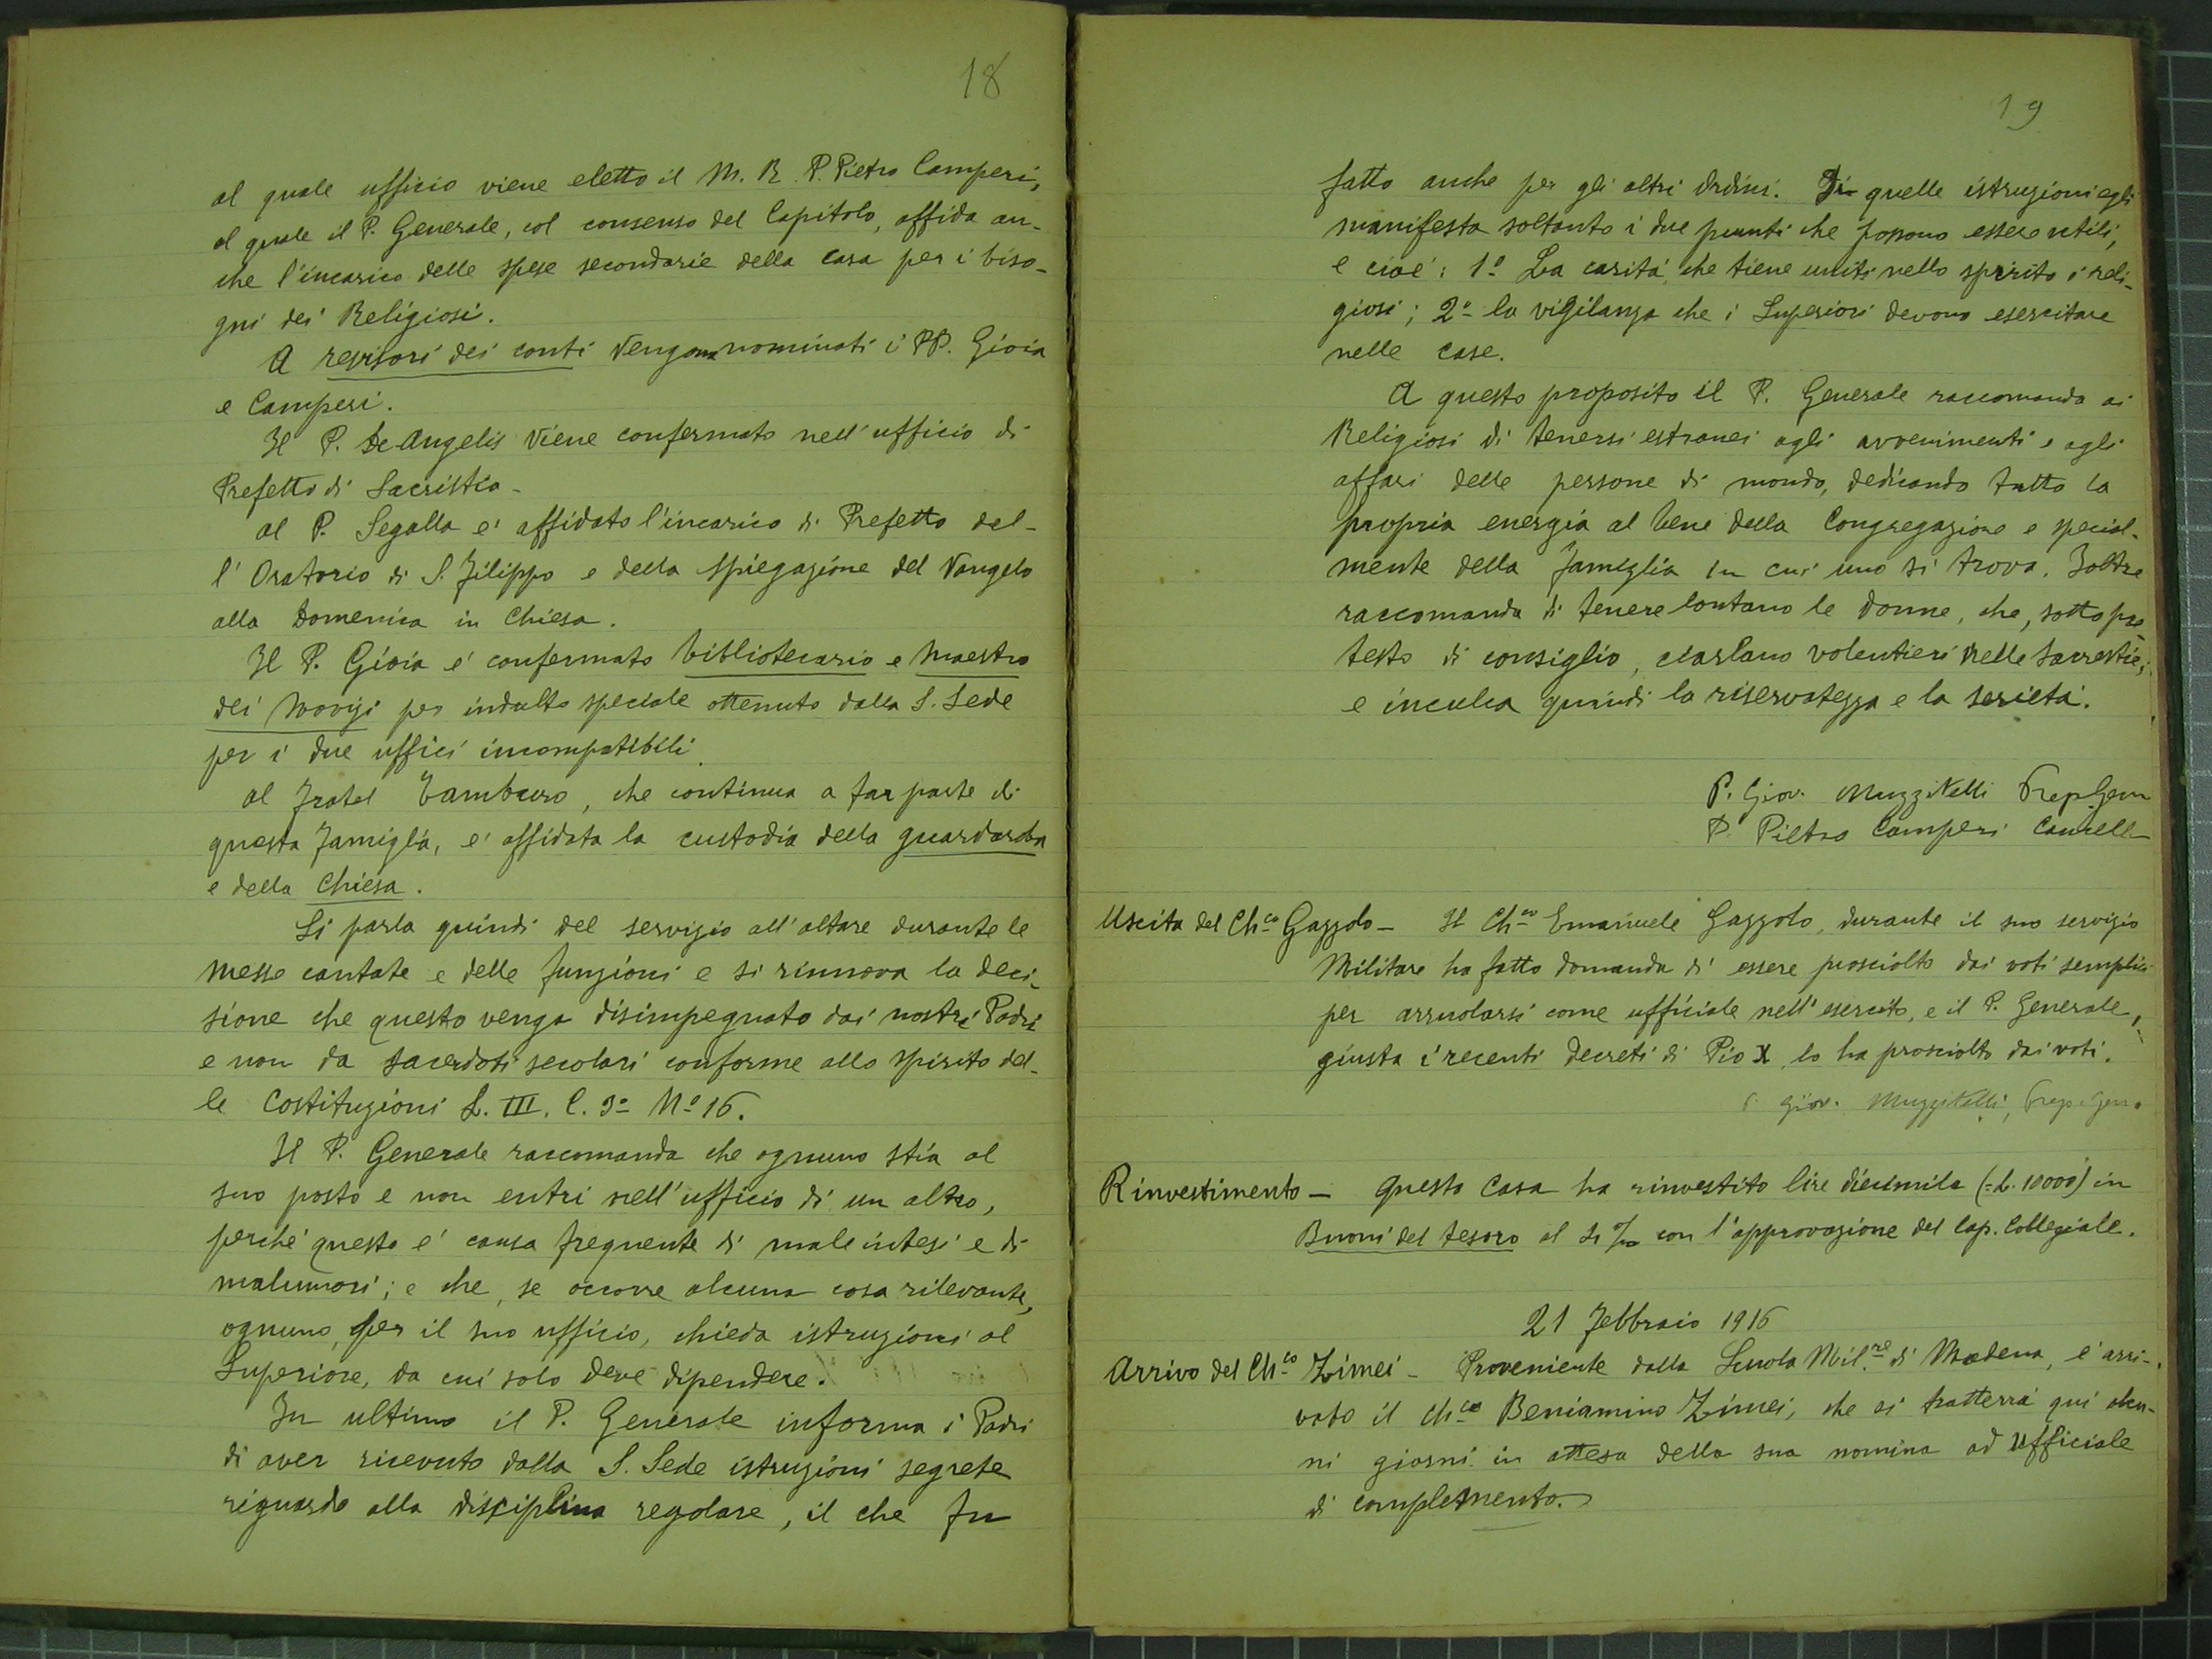 18
al quale ufficio viene eletto il M. R. P. Pietro Camperi,
al quale il P. Generale, col consenso del Capitolo, affida an-
che l'incarico delle spese secondarie della casa per i biso-
gni dei Religiosi.
A revisori dei conti vengono nominati i PP. Gioia
e Camperi.
Il P. De Angelis viene confermato nell'ufficio di
Prefetto di Sacristia.
Al P. Segalla e' affidato l'incarico di Prefetto del-
l'Oratorio di S. Filippo e della spiegazione del Vangelo
alla Domenica in Chiesa.
Il P. Gioia e' confermato bibliotecario e Maestro
dei Novizi per indulto speciale ottenuto dalla S. Sede
per i due uffici incompatibili.
Al Fratel Tamburo, che continua a far parte di
questa famiglia, e' affidata la custodia della guardaroba
e della Chiesa.
Si parla quindi del servizio all'altare durante le
Messe cantate e delle funzioni e si rinnova la deci-
sione che questo venga disimpegnato dai nostri Padri
e non da sacerdoti secolari conforme allo spirito del-
le Costituzioni L. III. C. 3º Nº 16.
Il P. Generale raccomanda che ognuno stia al
suo posto e non entri nell'ufficio di un altro,
perche' questo e' causa frequente di male intesi e di
malumori; e che, se occorre alcuna cosa rilevante,
ognuno, per il suo ufficio, chieda istruzioni al
Superiore, da cui solo deve dipendere.
In ultimo il P. Generale informa i Padri
di aver ricevuto dalla S. Sede istruzioni segrete
riguardo alla disciplina regolare, il che fu
19
fatto anche per gli altri Ordini. Di quelle istruzioni egli
manifesta soltanto i due punti che possono essere utili,
e cioe': 1º La carita', che tiene uniti nello spirito i reli-
giosi; 2º la vigilanza che i Superiori devono esercitare
nelle case.
A questo proposito il P. Generale raccomanda ai
Religiosi di tenersi estranei agli avvenimenti e agli
affari delle persone di mondo, dedicando tutta la
propria energia al bene della Congregazione e special-
mente della famiglia in cui uno si trova. Inoltre
raccomanda di tenere lontano le donne, che, sotto pre-
testo di consiglio, ciarlano volentieri nelle sacrestie;
e inculca quindi la riservatezza e la serieta'.
P. Giov. Muzzitelli Prep. Gen
P. Pietro Camperi Cancell
Uscita del Ch.co Gazzolo - Il Ch.co Emanuele Gazzolo, durante il suo servizio
Militare ha fatto domanda di essere prosciolto dai voti semplici
per arruolarsi come ufficiale nell'esercito, e il P. Generale,
giusta i recenti Decreti di Pio X, lo ha prosciolto dai voti.
P. Giov. Muzzitelli, Prep. Gen.
Rinvestimento - Questa Casa ha rinvestito lire diecimila (=L. 10000) in
Buoni del tesoro al % con l'approvazione del Cap. Collegiale.
21 Febbraio 1916
Arrivo del Ch.co Zimei - Proveniente dalla Scuola Mil.re di Modena, e' arri-
vato il Ch.co Beniamino Zimei, che si tratterra' qui alcu-
ni giorni in attesa della sua nomina ad Ufficiale
di complemento.